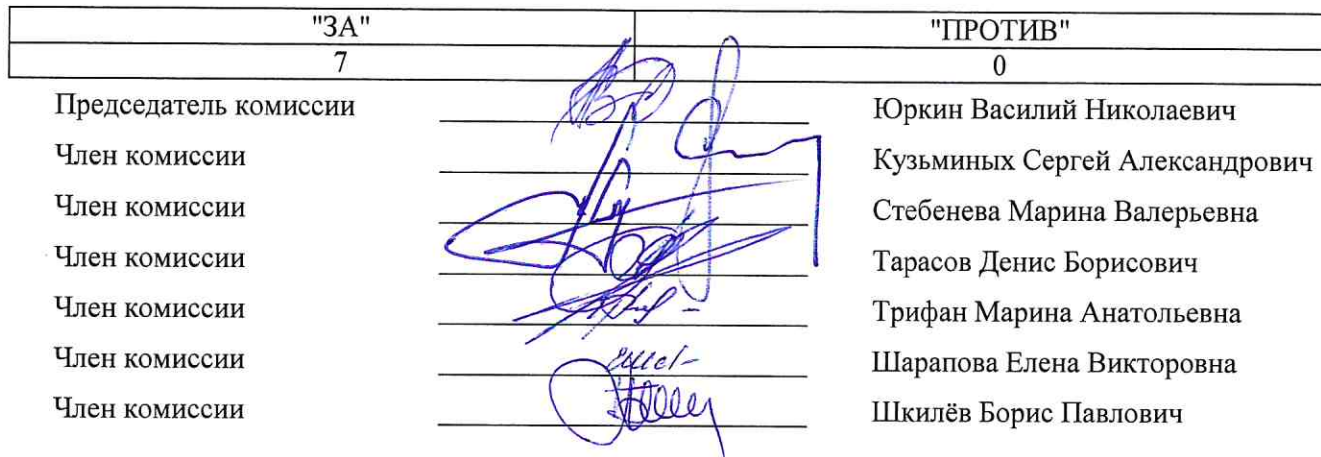 "ЗА" "ПРОТИВ"
7 0
Председатель комиссии Юркин Василий Николаевич
Член комиссии Кузьминых Сергей Александрович
Член комиссии Стебенева Марина Валерьевна
Член комиссии Тарасов Денис Борисович
Член комиссии Трифан Марина Анатольевна
Член комиссии Шарапова Елена Викторовна
Член комиссии Шкилёв Борис Павлович